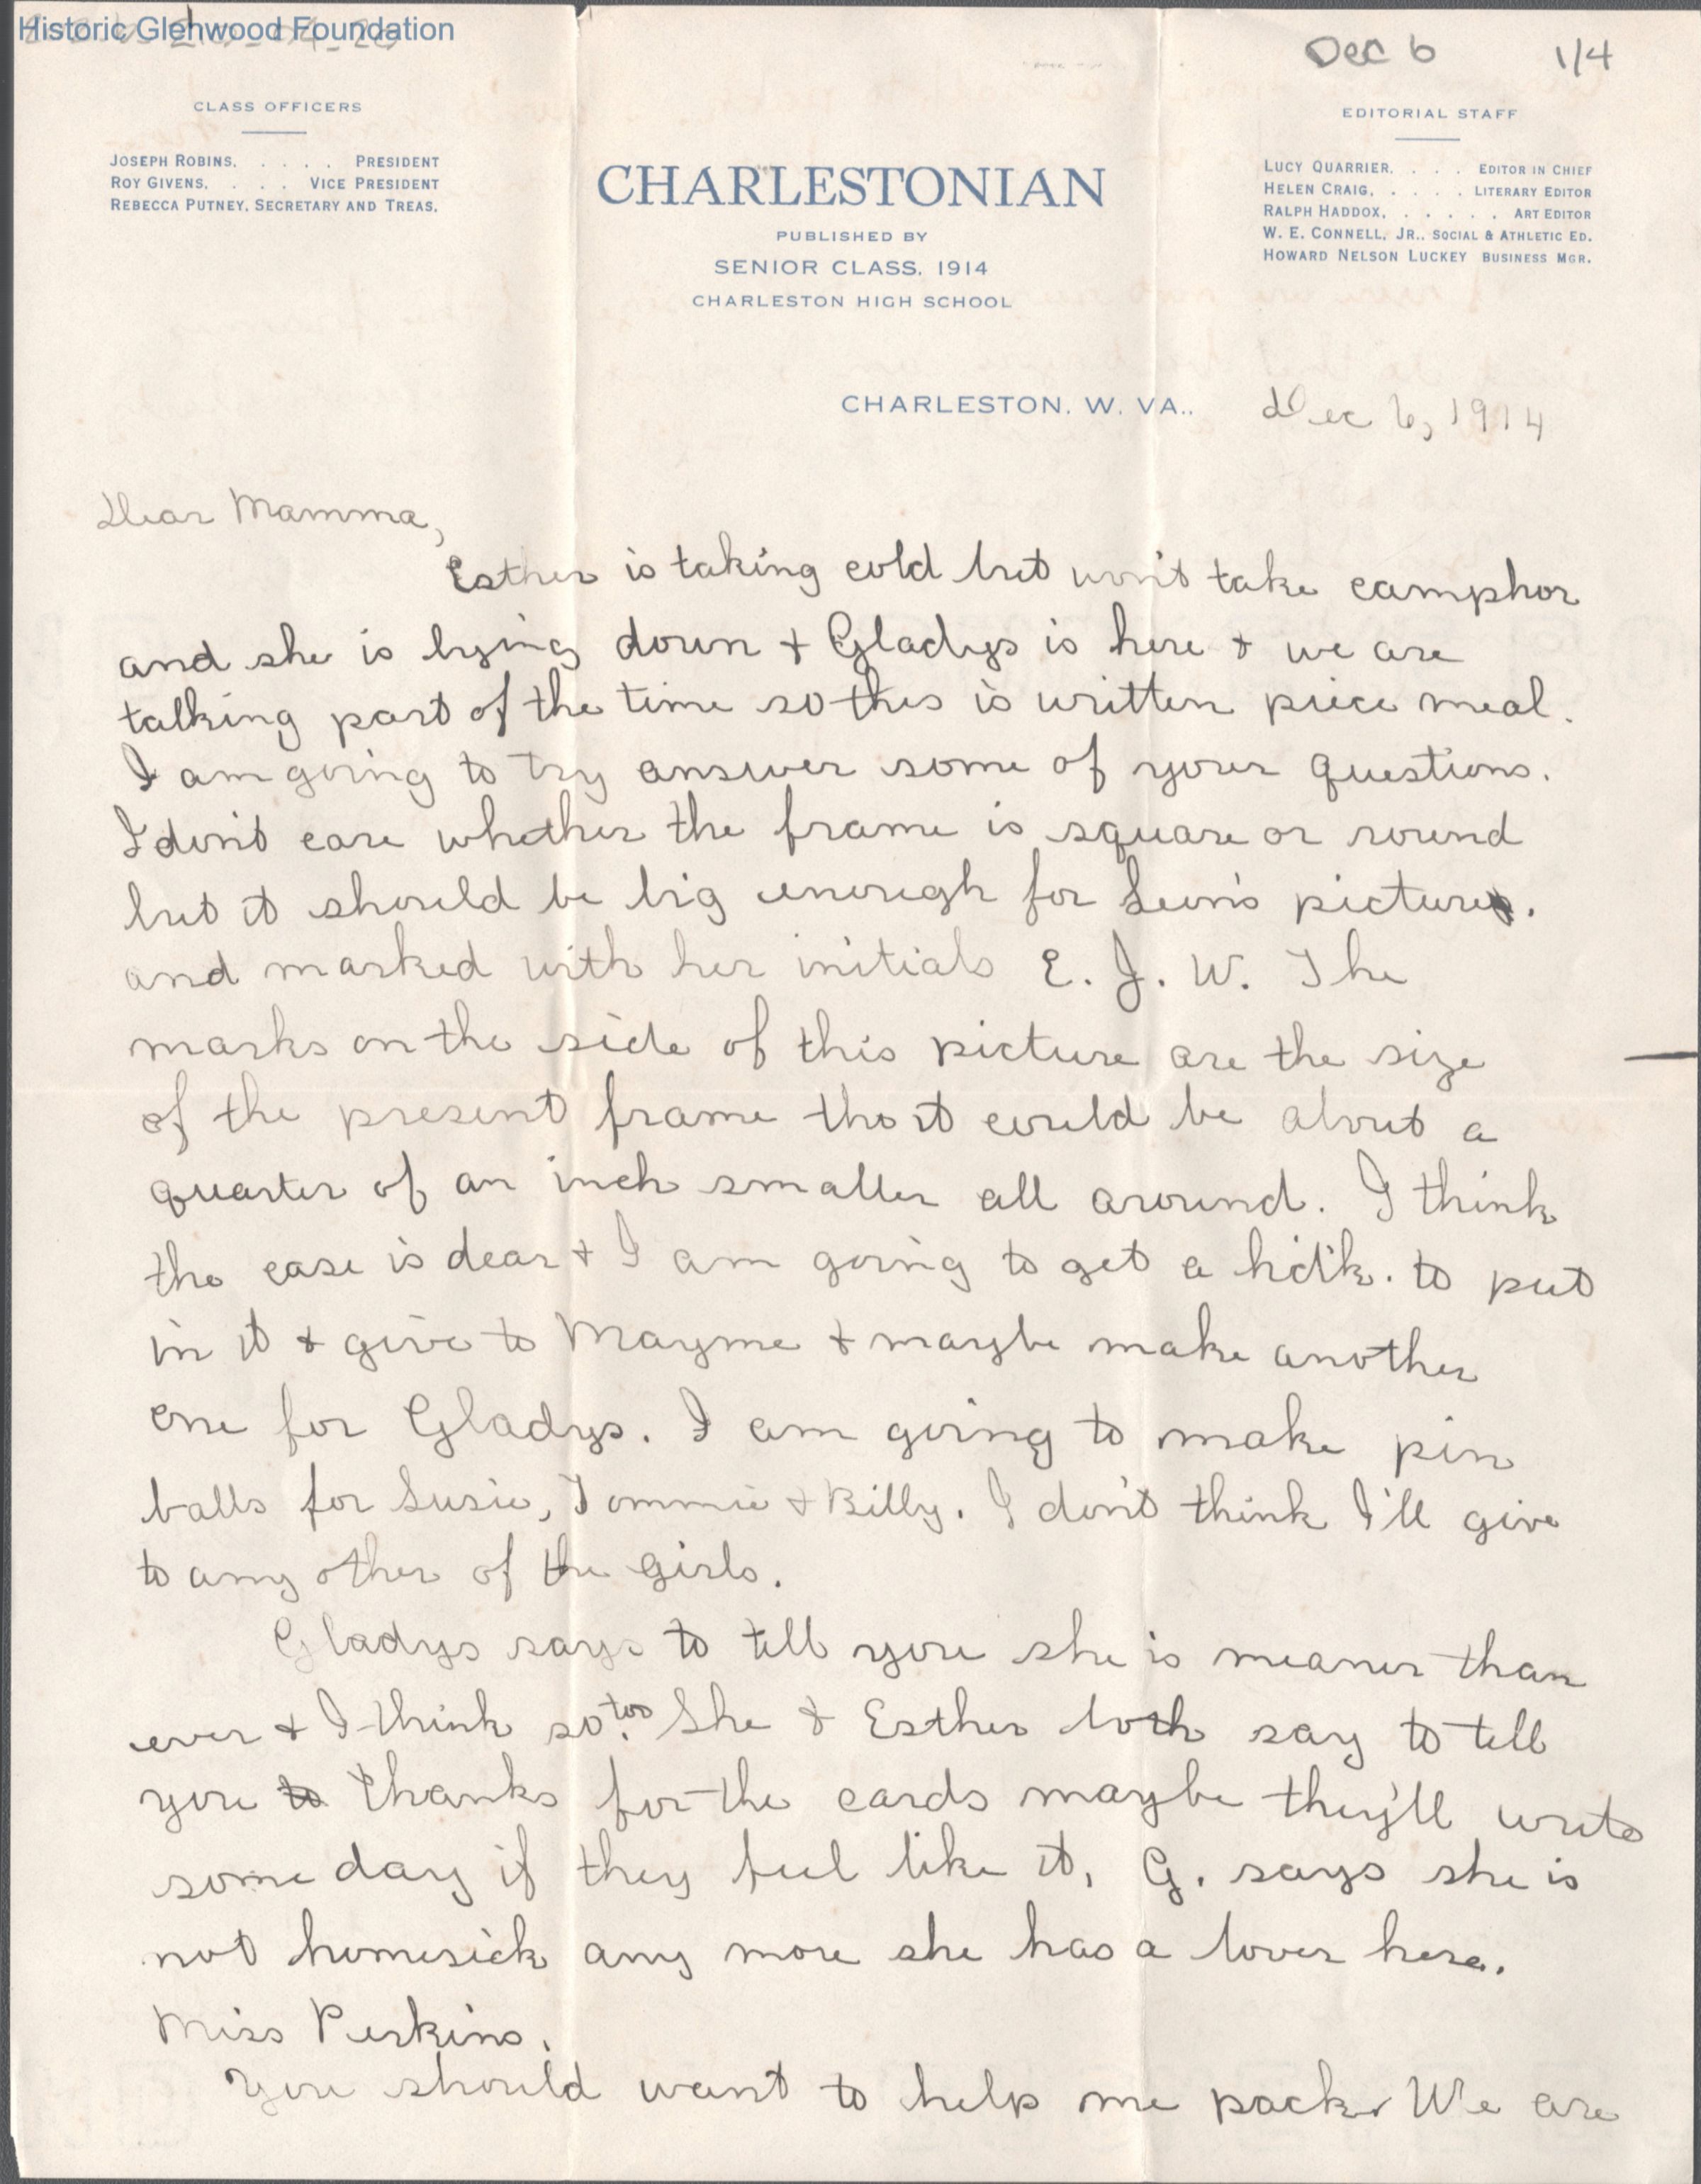 Historic Glenwood Foundation
Dec 6 1/4
CLASS OFFICERS
JOSEPH ROBINS. . . . . PRESIDENT
ROY GIVENS. . . . VICE PRESIDENT
REBECCA PUTNEY. SECRETARY AND TREAS.
CHARLESTONIAN
PUBLISHED BY
SENIOR CLASS. 1914
CHARLESTON HIGH SCHOOL
EDITORIAL STAFF
LUCY QUARRIER. . . . EDITOR IN CHIEF
HELEN CRAIG. . . . . LITERARY EDITOR
RALPH HADDOX. . . . . . ART EDITOR
W. E. CONNELL, JR.. SOCIAL & ATHLETIC ED.
HOWARD NELSON LUCKEY BUSINESS MGR.
CHARLESTON. W. VA.. Dec 6, 1914
Dear Mamma,
Esther is taking cold but won't take camphor
and she is lying down + Gladys is here + we are
talking part of the time so this is written piece meal.
I am going to try answer some of your questions.
I don't care whether the frame is square or round
but it should be big enough for Leon's picture.
and marked with her initials E. J. W. The
marks on the side of this picture are the size
of the present frame tho it could be about a
quarter of an inch smaller all around. I think
the case is dear + I am going to get a hdk. to put
in it + give to Mayme + maybe make another
one for Gladys. I am going to make pin
balls for Susie, Tommie + Billy. I don't think I'll give
to any other of the girls.
Gladys says to tell you she is meaner than
ever + I think so too. She + Esther both say to tell
you to thanks for the cards maybe they'll write
some day if they feel like it, G. says she is
not homesick any more she has a lover here.
Miss Perkins.
You should want to help me pack. We are